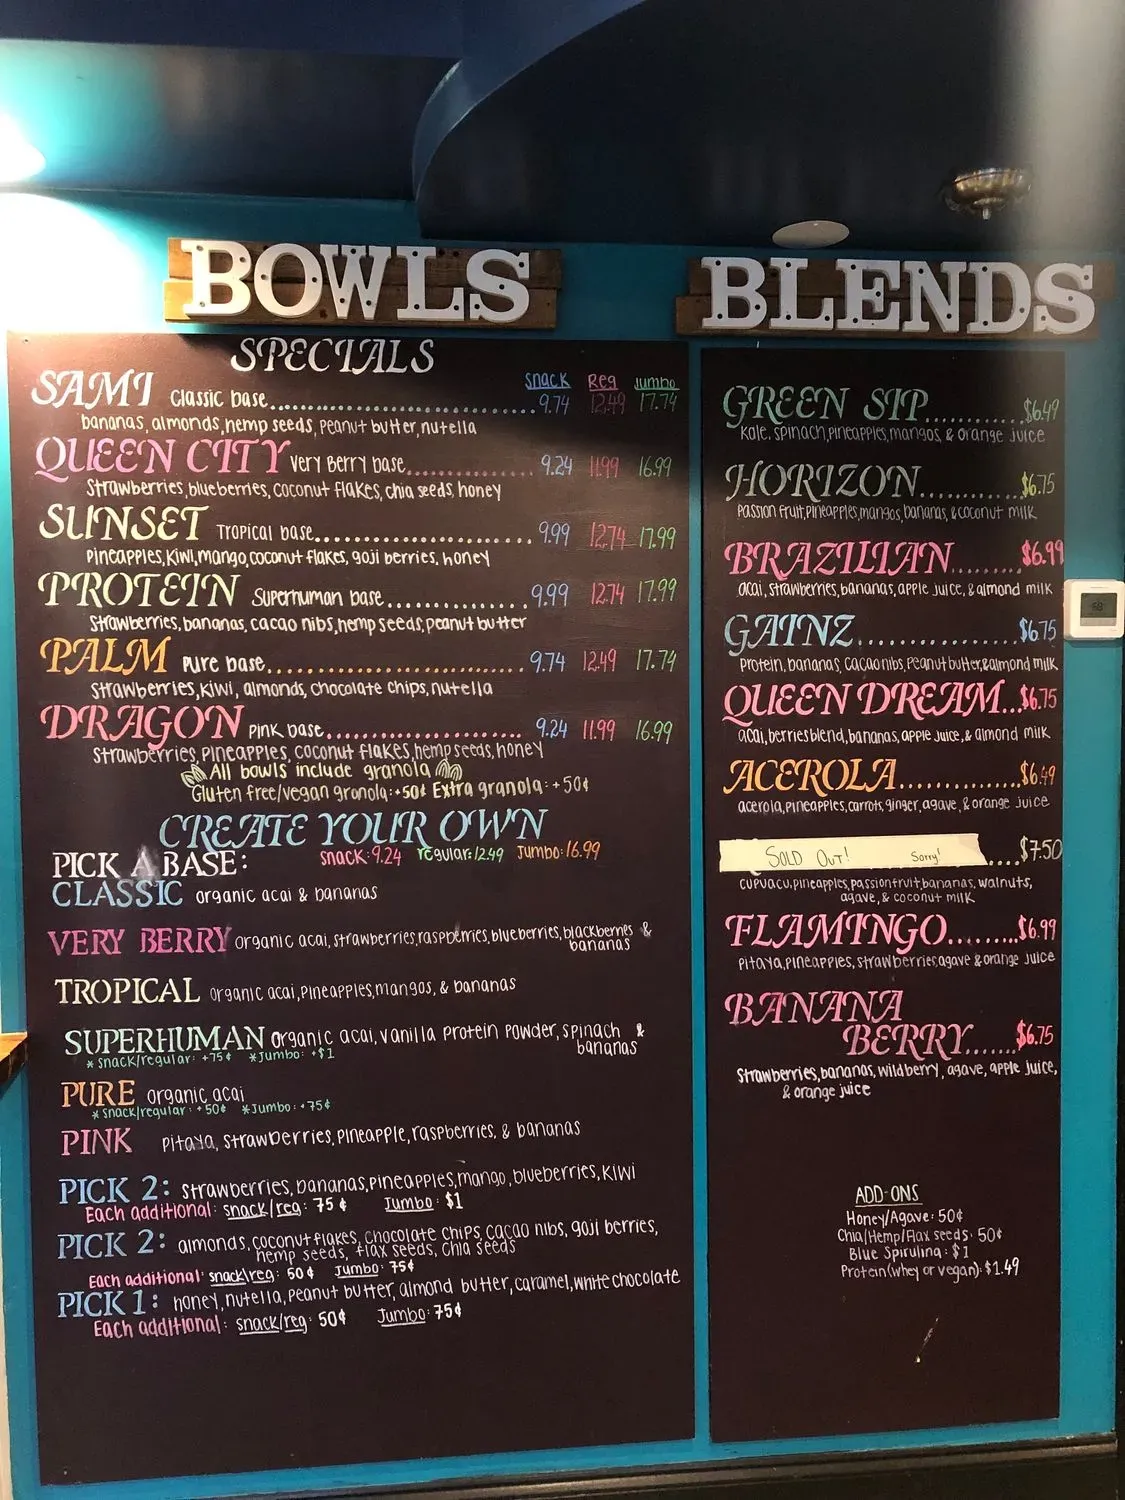 BOWLS
SPECIALS
snack Reg Jumbo
SAMI Classic base 9.74 12.49 17.74
bananas, almonds, hemp seeds, peanut butter, nutella
QUEEN CITY Very Berry base 9.24 11.99 16.99
Strawberries, blueberries, coconut flakes, chia seeds, honey
SUNSET Tropical base 9.99 12.74 17.99
Pineapples, Kiwi, mango, coconut flakes, goji berries, honey
PROTEIN Superhuman base 9.99 12.74 17.99
Strawberries, bananas, cacao nibs, hemp seeds, peanut butter
PALM Pure base 9.74 12.49 17.74
Strawberries, Kiwi, almonds, chocolate chips, nutella
DRAGON Pink base 9.24 11.99 16.99
Strawberries, Pineapples, coconut flakes, hemp seeds, honey
All bowls include granola
Gluten free/vegan gronola: +50¢ Extra granola: +50¢
CREATE YOUR OWN
PICK A BASE: snack: 9.24 regular: 12.49 Jumbo: 16.99
CLASSIC organic acai & bananas
VERY BERRY organic acai, strawberries, raspberries, blueberries, blackberries &
bananas
TROPICAL organic acai, Pineapples, mangos, & bananas
SUPERHUMAN organic acai, vanilla Protein Powder, spinach &
bananas
* snack/regular: +75¢ * Jumbo: +$1
PURE organic acai
* snack/regular: +50¢ * Jumbo: +75¢
PINK pitaya, strawberries, pineapple, raspberries, & bananas
PICK 2: strawberries, bananas, pineapples, mango, blueberries, Kiwi
Each additional: snack/reg: 75¢ Jumbo: $1
PICK 2: almonds, coconut flakes, chocolate chips, cacao nibs, goji berries,
hemp seeds, flax seeds, chia seeds
Each additional: snack/reg: 50¢ Jumbo: 75¢
PICK 1: honey, nutella, peanut butter, almond butter, caramel, white chocolate
Each additional: snack/reg: 50¢ Jumbo: 75¢
BLENDS
GREEN SIP $6.49
Kale, spinach, pineapples, mangos, & orange juice
HORIZON $6.75
Passion fruit, pineapples, mangos, bananas, & coconut milk
BRAZILIAN $6.99
acai, strawberries, bananas, apple juice, & almond milk
GAINZ $6.75
Protein, bananas, cacao nibs, Peanut butter, & almond milk
QUEEN DREAM $6.75
acai, berries blend, bananas, apple juice, & almond milk
ACEROLA $6.49
acerola, pineapples, carrots, ginger, agave, & orange juice
SOLD OUT! Sorry! $7.50
cupuacu, pineapples, passionfruit, bananas, walnuts,
agave, & coconut milk
FLAMINGO $6.99
Pitaya, pineapples, strawberries, agave & orange juice
BANANA
BERRY $6.75
Strawberries, bananas, wildberry, agave, apple juice,
& orange juice
ADD-ONS
Honey/Agave: 50¢
Chia/Hemp/Flax seeds: 50¢
Blue Spirulina: $1
Protein (whey or vegan): $1.49